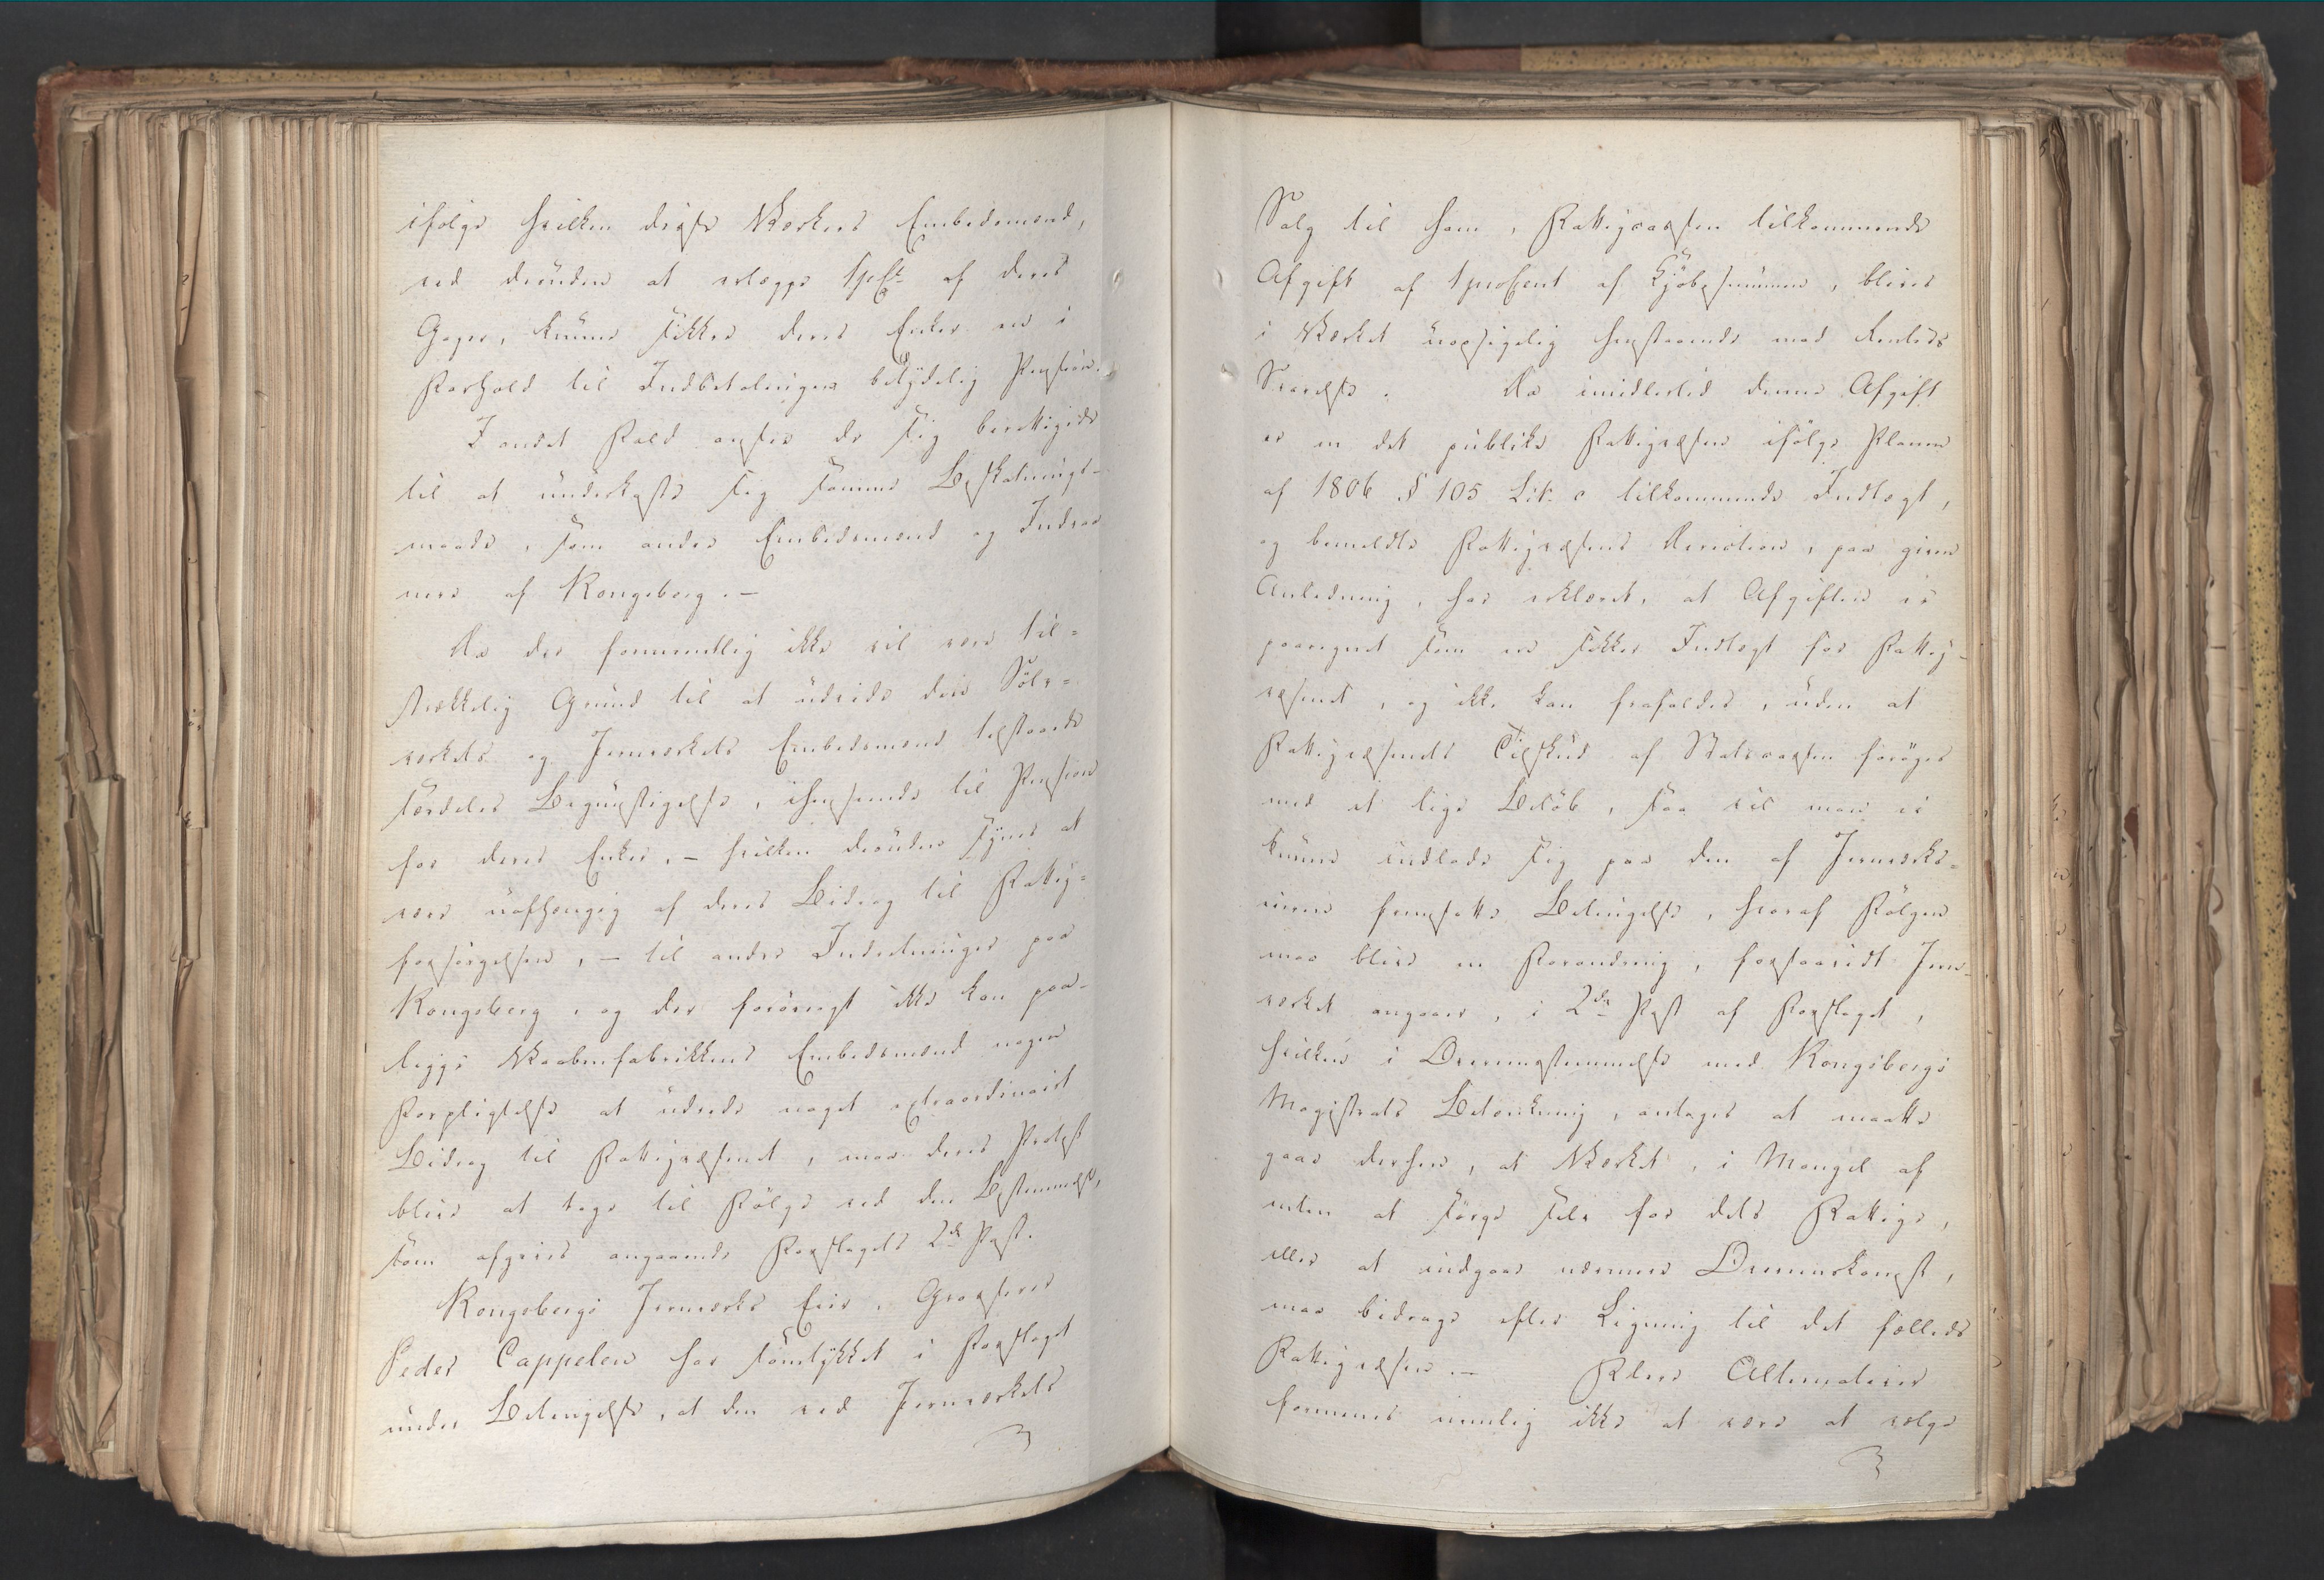 ifölge hvilken disse Værkers Embedsmænd,
ved derunder at erlægge 1 pCt af deres
Gager, kunne sikkre deres Enker en i
Forhold til Indbetalingen betydelig Pension.
I andet Fald ansee de sig berettigede
til at underkaste sig samme Beskatnings-
maade, som andre Embedsmænd og Indvaa
nere af Kongsberg. -
Da der formeentlig ikke vil være til-
strækkelig Grund til at udvide den Sölv-
værkets og Jernværkets Embedsmænd tilstaaede
særdeles Begunstigelse, i henseende til Pension
for deres Enker, - hvilken desuden synes at
være uafhængig af deres Bidrag til Fattig-
forsörgelsen, - til andre Indretninger paa
Kongsberg, og der forövrigt ikke kan paa-
lægges Vaabenfabrikkens Embedsmænd nogen
Forpligtelse at udrede noget extraordinairt
Bidrag til Fattigvæsenet, maae deres Protest
blive at tage til Fölge ved den Bestemmelse,
som afgives angaaende Forslagets 2de Post.
Kongsbergs Jernværks Eier, Grosserer
Peder Cappelen har samtykket i Forslaget
under Betingelse, at den ved Jernværkets
Salg til ham, Fattigcassen tilkommende
Afgift af 1 proCent af Kjöbesummen, bliver
i Værket uopsigelig henstaaende mod Rentes
Svarelse. Da imidlertid denne Afgift
er en det publike Fattigvæsen ifölge Planen
af 1806 § 105 Lit: c tilkommende Indtægt,
og bemeldte Fattigvæsens Direction, paa given
Anledning, har erklæret, at Afgiften er
paaregnet som en sikker Indtægt for Fattig-
væsenet, og ikke kan frafaldes, uden at
Fattigvæsenets Tilskud af Statscassen foröges
med et lige Belöb, saa vil man ei
kunne indlade sig paa den af Jernværks-
eieren fremsatte Betingelse, hvoraf Fölgen
maa blive en Forandring, forsaavidt Jern-
værket angaaer, i 2den Post af Forslaget,
hvilken i Overeensstemmelse med Kongsbergs
Magistrats Betænkning, antages at maatte
gaae derhen, at Værket, i Mangel af
enten at sörge selv for dets Fattige,
eller at indgaae nærmere Overeenskomst,
maa bidrage efter Ligning til det fælleds
Fattigvæsen. - Flere Alternativer
formenes nemlig ikke at være at vælge